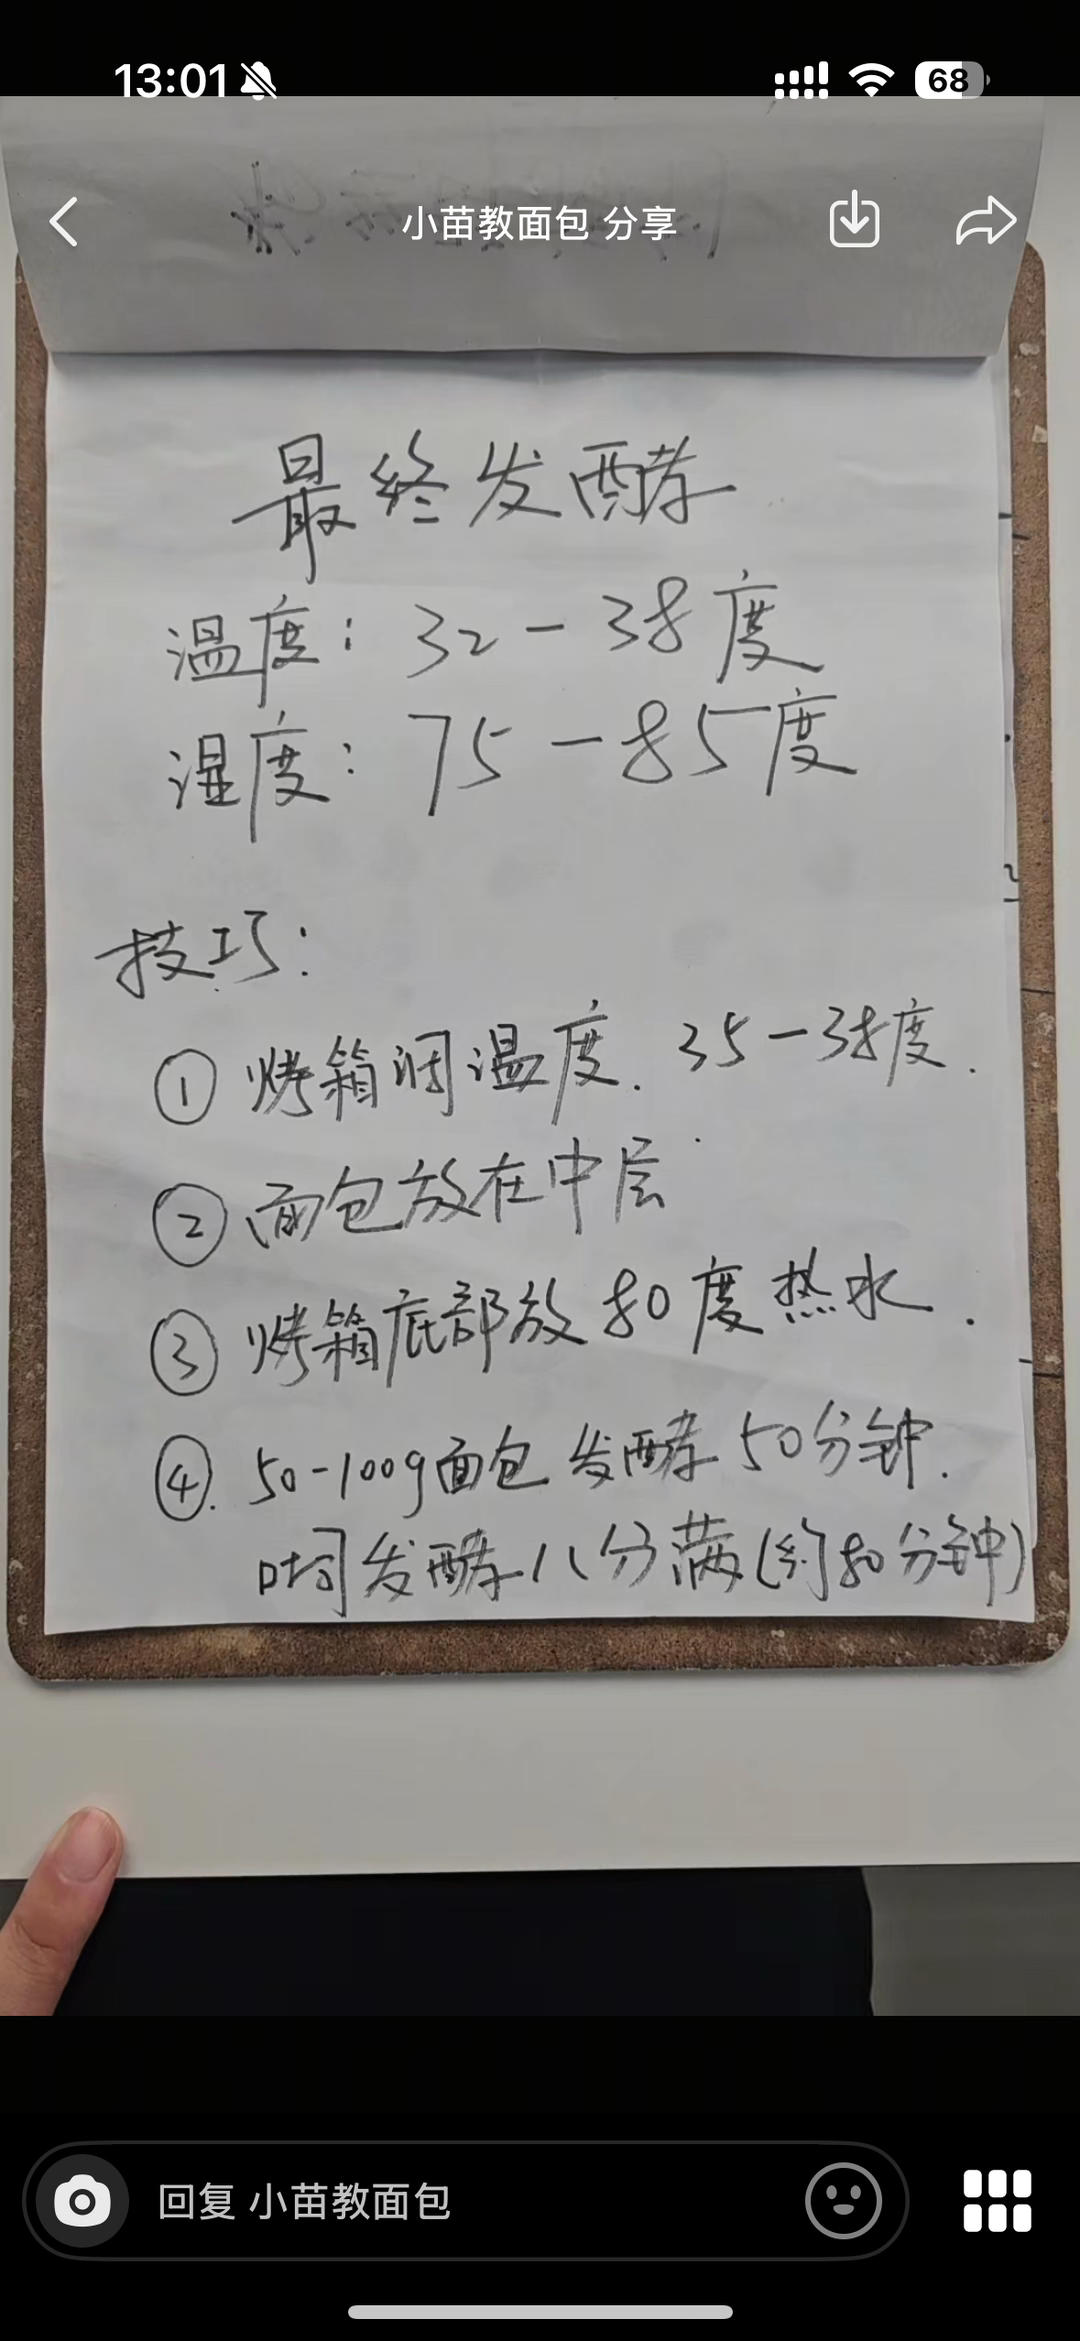 13:01
68
小苗教面包 分享
最终发酵
温度: 32-38度
湿度: 75-85度
技巧:
① 烤箱调温度. 35-38度.
② 面包放在中层
③ 烤箱底部放80度热水.
④. 50-100g面包发酵50分钟.
吐司发酵八分满(约80分钟)
回复 小苗教面包